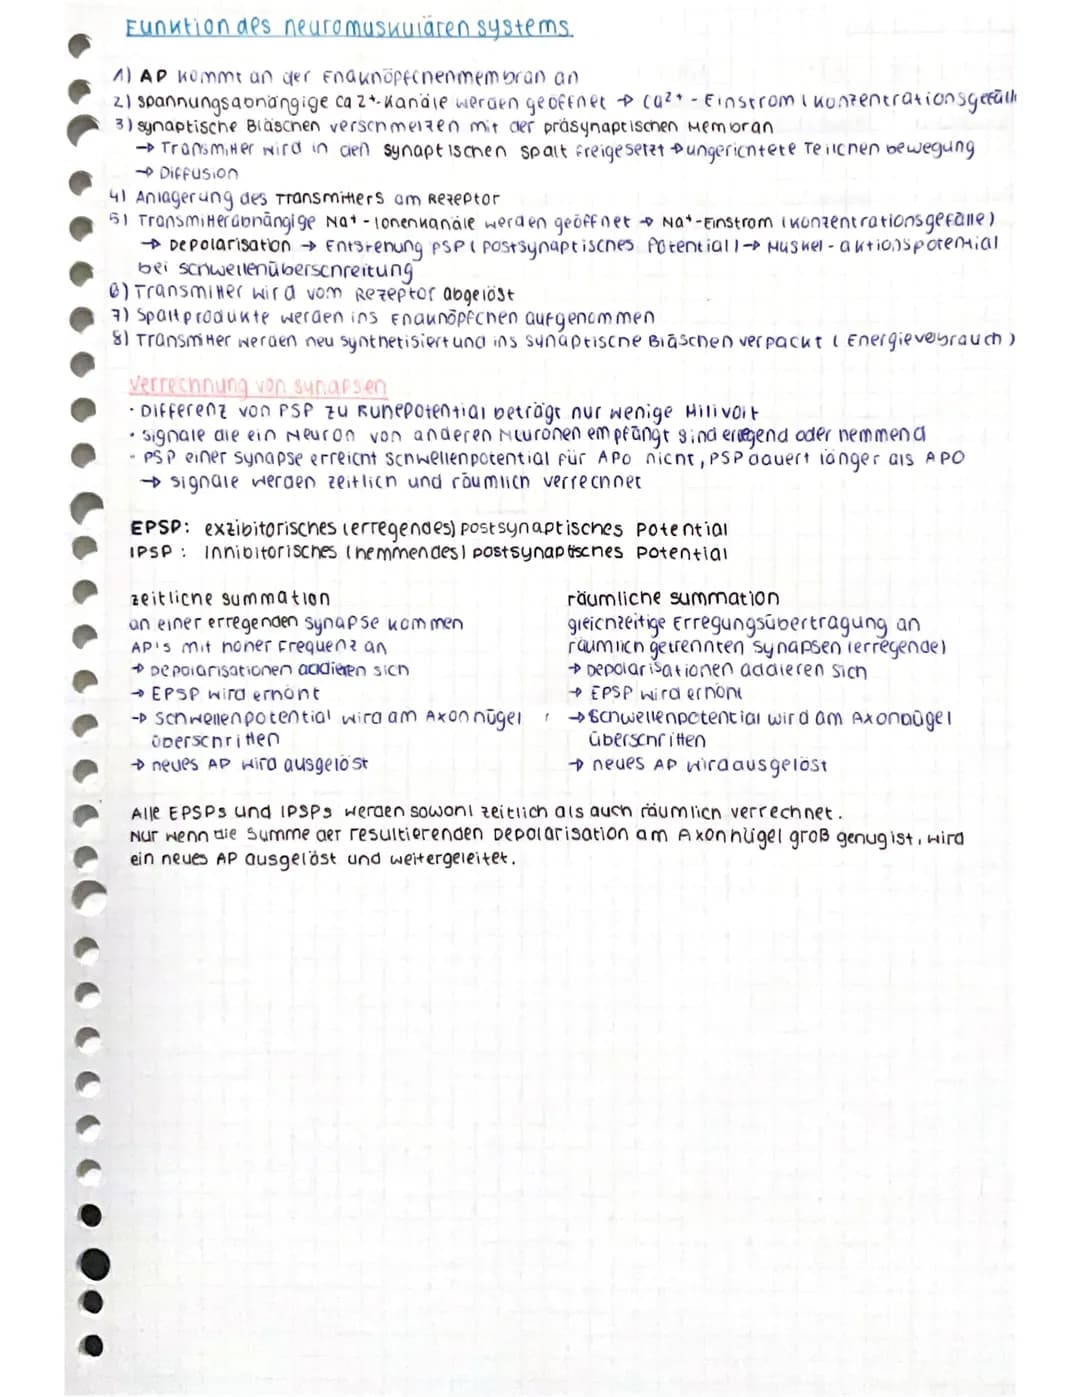 Funktion des neuromuskulären systems
1) AP kommt an der Endknöpfchenmembran an
2) spannungsabhängige Ca 2+-Kanäle werden geöffnet → Ca²⁺ - Einstrom ( Konzentrationsgefälle
3) synaptische Bläschen verschmelzen mit der präsynaptischen Membran
→ Transmitter wird in den synaptischen spalt freigesetzt → ungerichtete Teilchenbewegung
→ Diffusion
4) Anlagerung des Transmitters am Rezeptor
5) Transmitterabhängige Na⁺ - Ionenkanäle werden geöffnet → Na⁺-Einstrom (Konzentrationsgefälle)
→ Depolarisation → Entstehung PSP ( Postsynaptisches Potential ) → Muskel - aktionspotential
bei schwellenüberschreitung
6) Transmitter wird vom Rezeptor abgelöst
7) Spaltprodukte werden ins Endknöpfchen aufgenommen
8) Transmitter werden neu synthetisiert und ins synaptische Bläschen verpackt ( Energieverbrauch )
Verrechnung von synapsen
· Differenz von PSP zu Ruhepotential beträgt nur wenige Milivolt
· signale die ein Neuron von anderen Neuronen empfängt sind erregend oder hemmend
· PSP einer Synapse erreicht Schwellenpotential für APo nicht, PSP dauert länger als APO
→ signale werden zeitlich und räumlich verrechnet
EPSP: exzibitorisches (erregendes) postsynaptisches Potential
IPSP : Inhibitorisches (hemmendes) postsynaptisches Potential
zeitliche summation
an einer erregenden Synapse kommen
AP's mit hoher Frequenz an
→ Depolarisationen addieren sich
→ EPSP wird erhöht
→ Schwellenpotential wird am Axonhügel
überschritten
→ neues AP wird ausgelöst
räumliche summation
gleichzeitige Erregungsübertragung an
räumlich getrennten Synapsen (erregende)
→ Depolarisationen addieren sich
→ EPSP wird erhöht
→ Schwellenpotential wird am Axonhügel
überschritten
→ neues AP wird ausgelöst
Alle EPSPs und IPSPs werden sowohl zeitlich als auch räumlich verrechnet.
Nur wenn die Summe der resultierenden Depolarisation am Axonhügel groß genug ist, wird
ein neues AP ausgelöst und weitergeleitet.